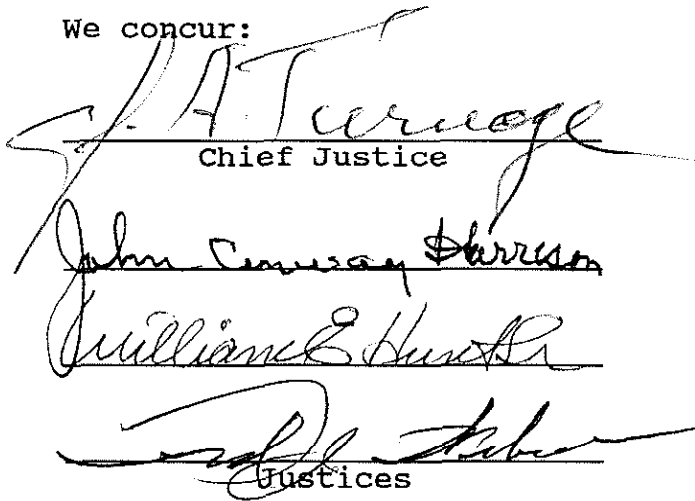 We concur:
J. A. Turnage
Chief Justice
John Conway Harrison
William E Hunt Sr
Justices